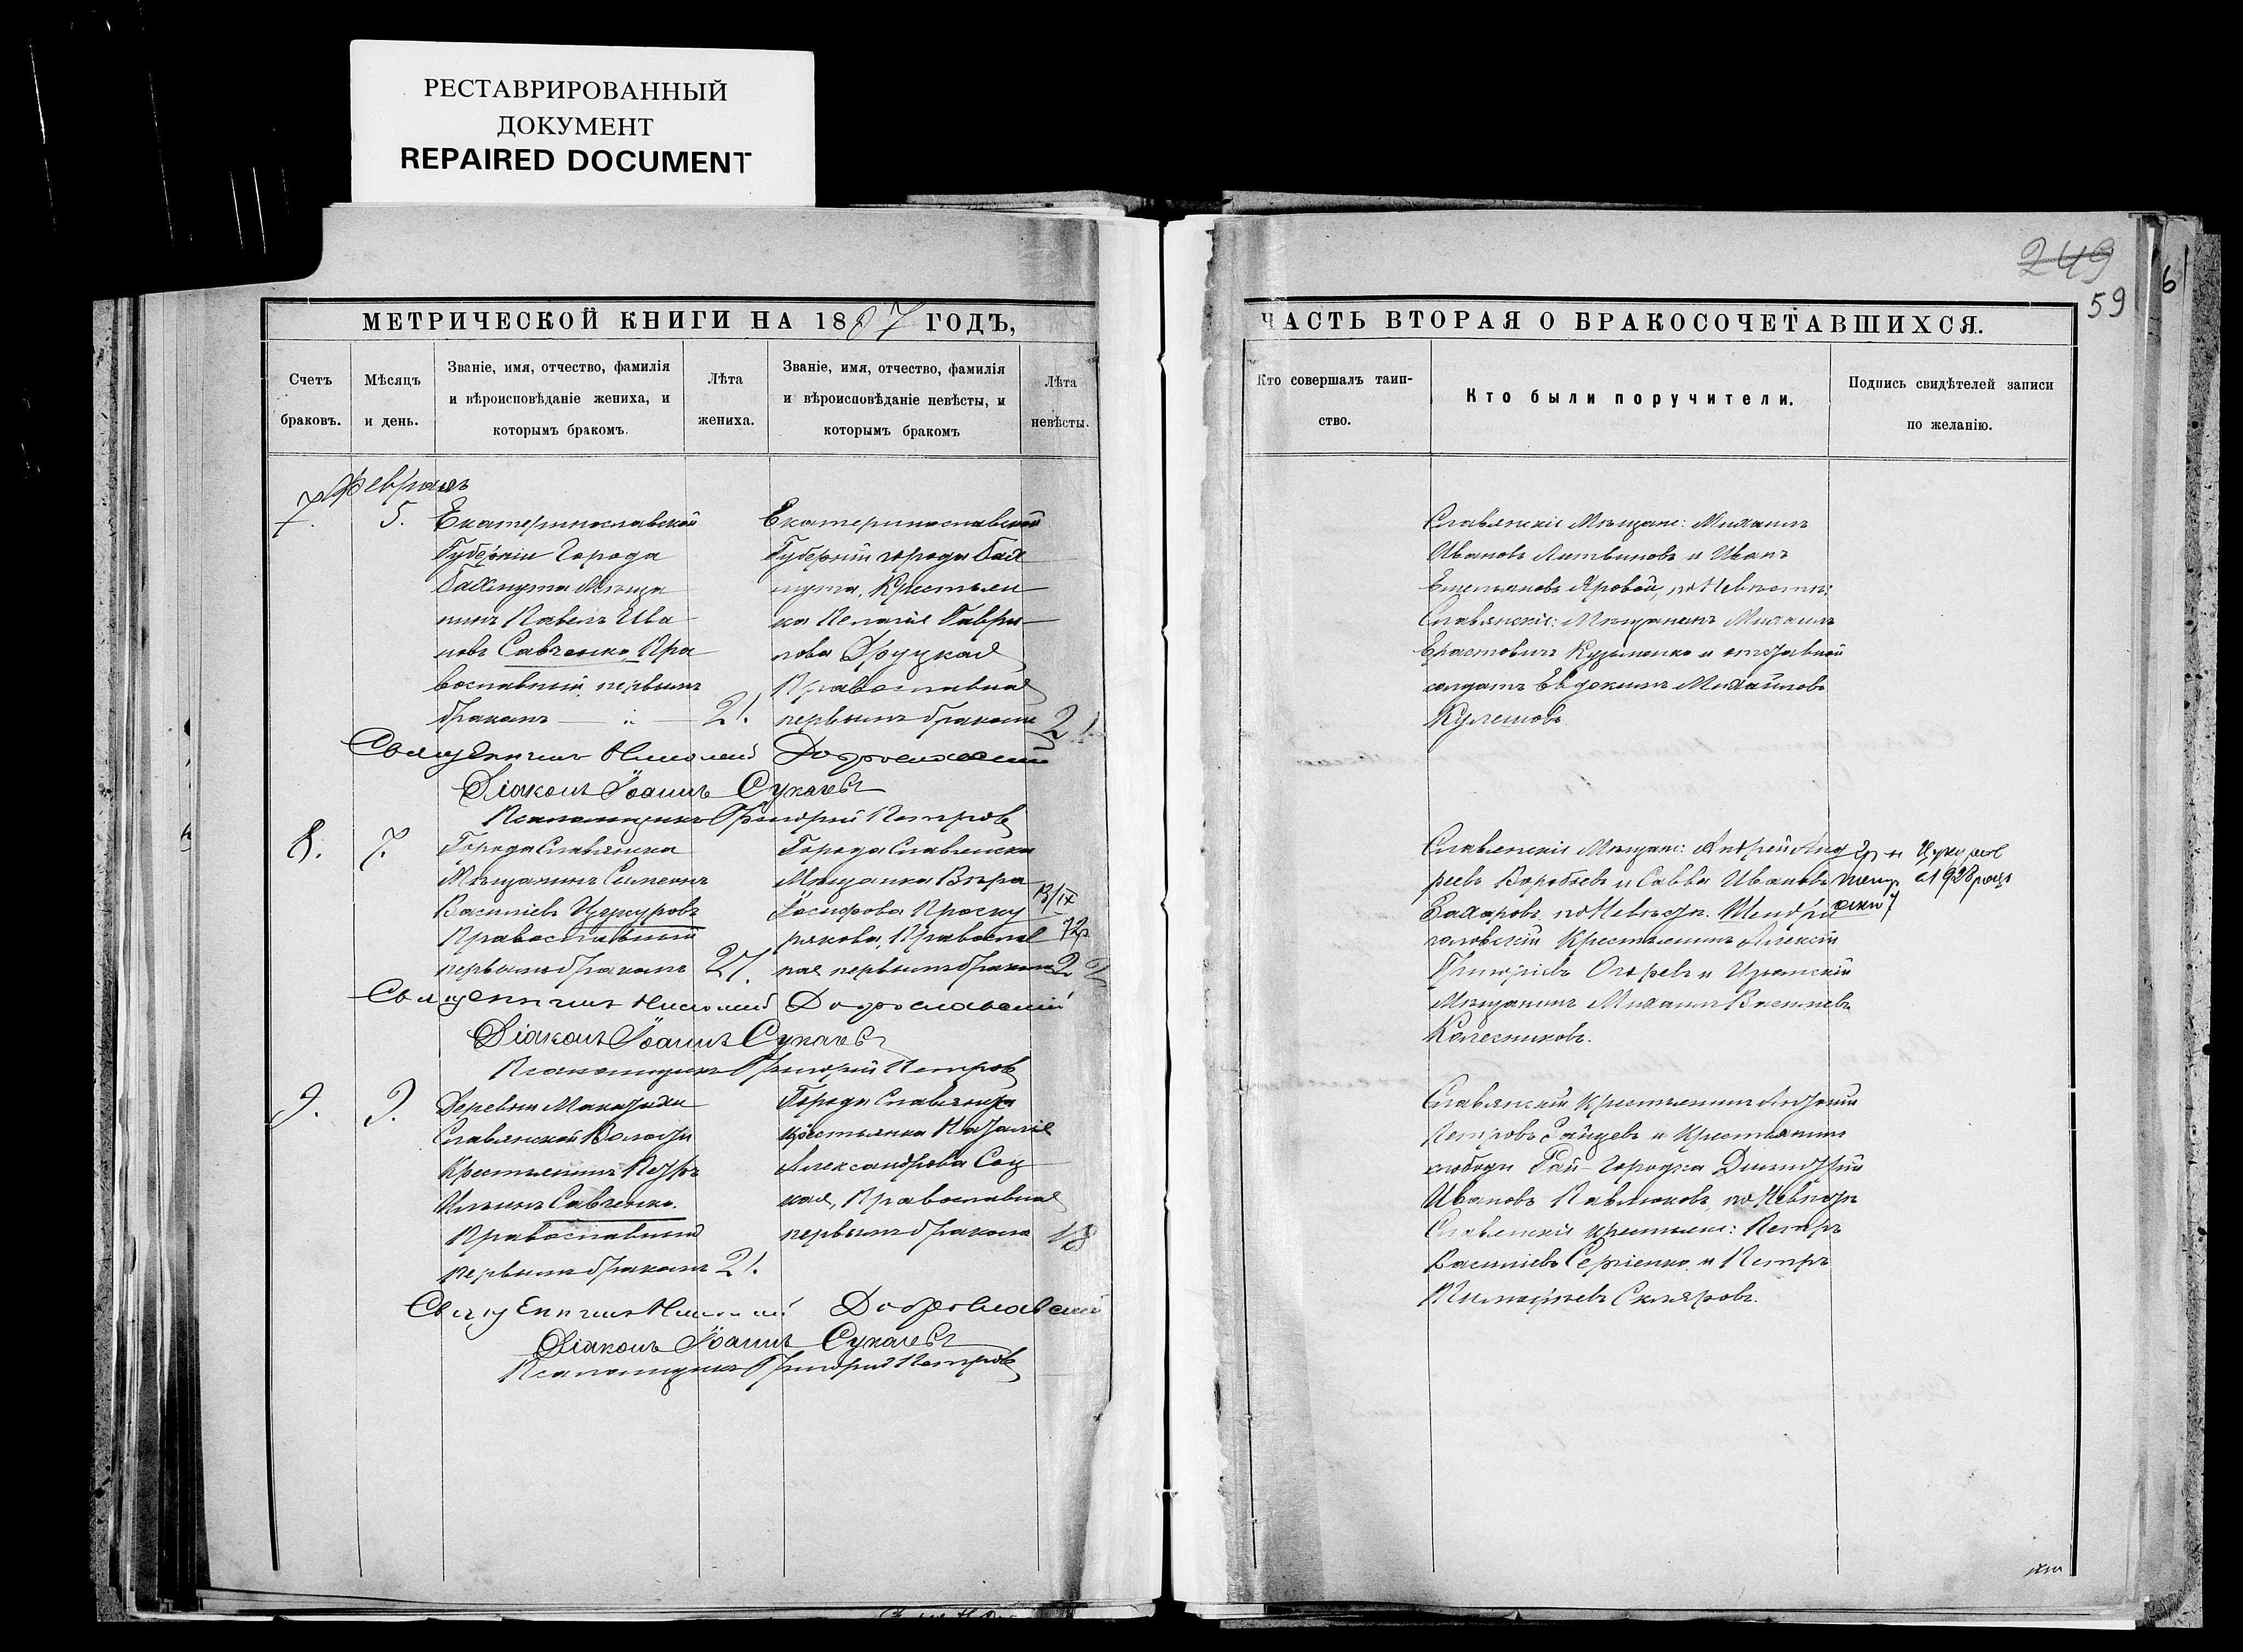 РЕСТАВРИРОВАННЫЙ
ДОКУМЕНТ
REPAIRED DOCUMENT
249
59
6
МЕТРИЧЕСКОЙ КНИГИ НА 1887 ГОДЪ,
Счетъ
браковъ.
Мѣсяцъ
и день.
Званіе, имя, отчество, фамилія
и вѣроисповѣданіе жениха, и
которымъ бракомъ.
Лѣта
жениха.
Званіе, имя, отчество, фамилія
и вѣроисповѣданіе невѣсты, и
которымъ бракомъ
Лѣта
невѣсты.
Февраль
7.
5.
Екатеринославской
Губерніи Города
Бахмута Мѣща
нинъ Павелъ Ива
новъ Савченко, Пра
вославный, первымъ
бракомъ 21.
Екатеринославской
Губерніи города Бах
мута, Крестьян
ка Пелагія Гаври
лова Друцкая
Православная
первымъ бракомъ 21
Священникъ Николай Доброславскій
Діаконъ Іоаннъ Сукачевъ
Псаломщикъ Григорій Петровъ
8.
7.
Города Славянска
Мѣщанинъ Симеонъ
Василіевъ Цукуровъ
Православный
первымъ бракомъ 27.
Города Славянска
Мѣщанка Вѣра
Іосифова Проску
рякова, Православ
ная первымъ бракомъ 22
13/IX
72р
Священникъ Николай Доброславскій
Діаконъ Іоаннъ Сукачевъ
Псаломщикъ Григорій Петровъ
9.
9.
Деревни
Славянской Волости
Крестьянинъ Петръ
Ильинъ Савченко.
Православный
первымъ бракомъ 21.
Города Славянска
крестьянка Наталія
Александрова Соц
кая, Православная
первымъ бракомъ 18
Священникъ Николай Доброславскій
Діаконъ Іоаннъ Сукачевъ
Псаломщикъ Григорій Петровъ
ЧАСТЬ ВТОРАЯ О БРАКОСОЧЕТАВШИХСЯ.
Кто совершалъ таин-
ство.
Кто были поручители.
Подпись свидѣтелей записи
по желанію.
Славянскіе Мѣщане: Михаилъ
Ивановъ Литвиновъ и Иванъ
Емельяновъ Яровой, по Невѣстѣ:
Славянскіе: Мѣщанинъ Михаилъ
Ерастовичъ Кузьменко и отставной
солдатъ Евдокимъ Михайловъ
Кулешовъ.
Славянскіе Мѣщане: Андрей Анд
реевъ Воробьевъ и Савва Ивановъ
Захаровъ, по Невѣстѣ.
Крестьянинъ Алексій
Григоріевъ и Изюмскій
Мѣщанинъ Михаилъ Васильевъ
Колесниковъ.
1928 році
Славянскій Крестьянинъ Антоній
Петровъ Зайцевъ и Крестьянинъ
слободы Рай-Городка Димитрій
Ивановъ Павлюковъ, по Невѣстѣ
Славянскіе крестьяне: Петръ
Василіевъ Сергіенко и Петръ
Тимофеевъ Скляровъ.